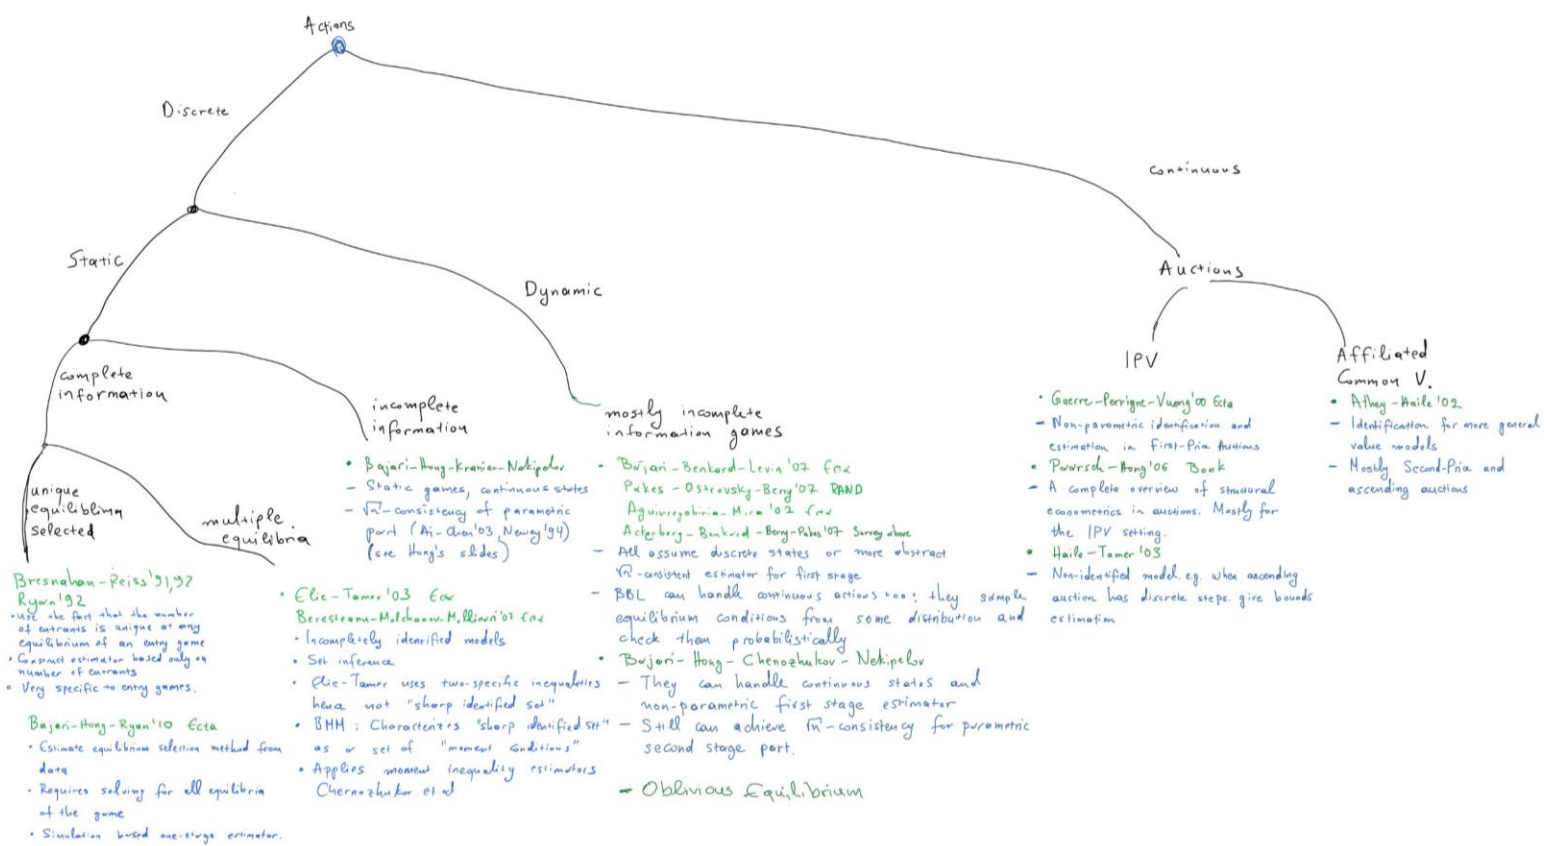 Actions
Discrete
continuous
Static
Dynamic
Auctions
complete
information
incomplete
information
mostly incomplete
information games
IPV
Affiliated
Common V.
unique
equiliblium
selected
multiple
equilibria
Bresnahan-Reiss'91,92
Ryan'92
• use the fact that the number
of entrants is unique at any
equilibrium of an entry game
• Construct estimator based only on
number of entrants
• Very specific to entry games.
Bajari-Hong-Ryan'10 Ecta
• Estimate equilibrium selection method from
data
• Requires solving for all equilibria
of the game
• Simulation based one-stage estimator.
• Elie-Tamer'03 Ecta
Beresteanu-Molchanov-Mollinari'07 Ecta
• Incompletely identified models
• Set inference
• Elie-Tamer uses two-specific inequalities
hence not "sharp identified set"
• BMM: Characterizes "sharp identified set"
as a set of "moment conditions"
• Applies moment inequality estimators
Chernozhukov et al
• Bajari-Hong-Kranier-Nekipelov
– Static games, continuous states
– √n-consistency of parametric
part (Ai-Chen'03, Newey'94)
(see Hong's slides)
- Bajari-Benkard-Levin'07 Ecta
Pakes-Ostrovsky-Berry'07 RAND
Aguirregabiria-Mira'02 Ecta
Ackerberg-Benkard-Berry-Pakes'07 Survey above
– All assume discrete states or more abstract
√n-consistent estimator for first stage
– BBL can handle continuous actions too: they sample
equilibrium conditions from some distribution and
check them probabilistically
• Bajari-Hong-Chenozhukov-Nekipelov
– They can handle continuous states and
non-parametric first stage estimator
– Still can achieve √n-consistency for parametric
second stage part.
– Oblivious Equilibrium
• Guerre-Perrigne-Vuong'00 Ecta
– Non-parametric identification and
estimation in First-Price Auctions
• Paarsch-Hong'06 Book
– A complete overview of structural
econometrics in auctions. Mostly for
the IPV setting.
• Haile-Tamer'03
– Non-identified model. eg. when ascending
auction has discrete steps. give bounds
estimation
• Athey-Haile'02
– Identification for more general
value models
– Mostly Second-Price and
ascending auctions